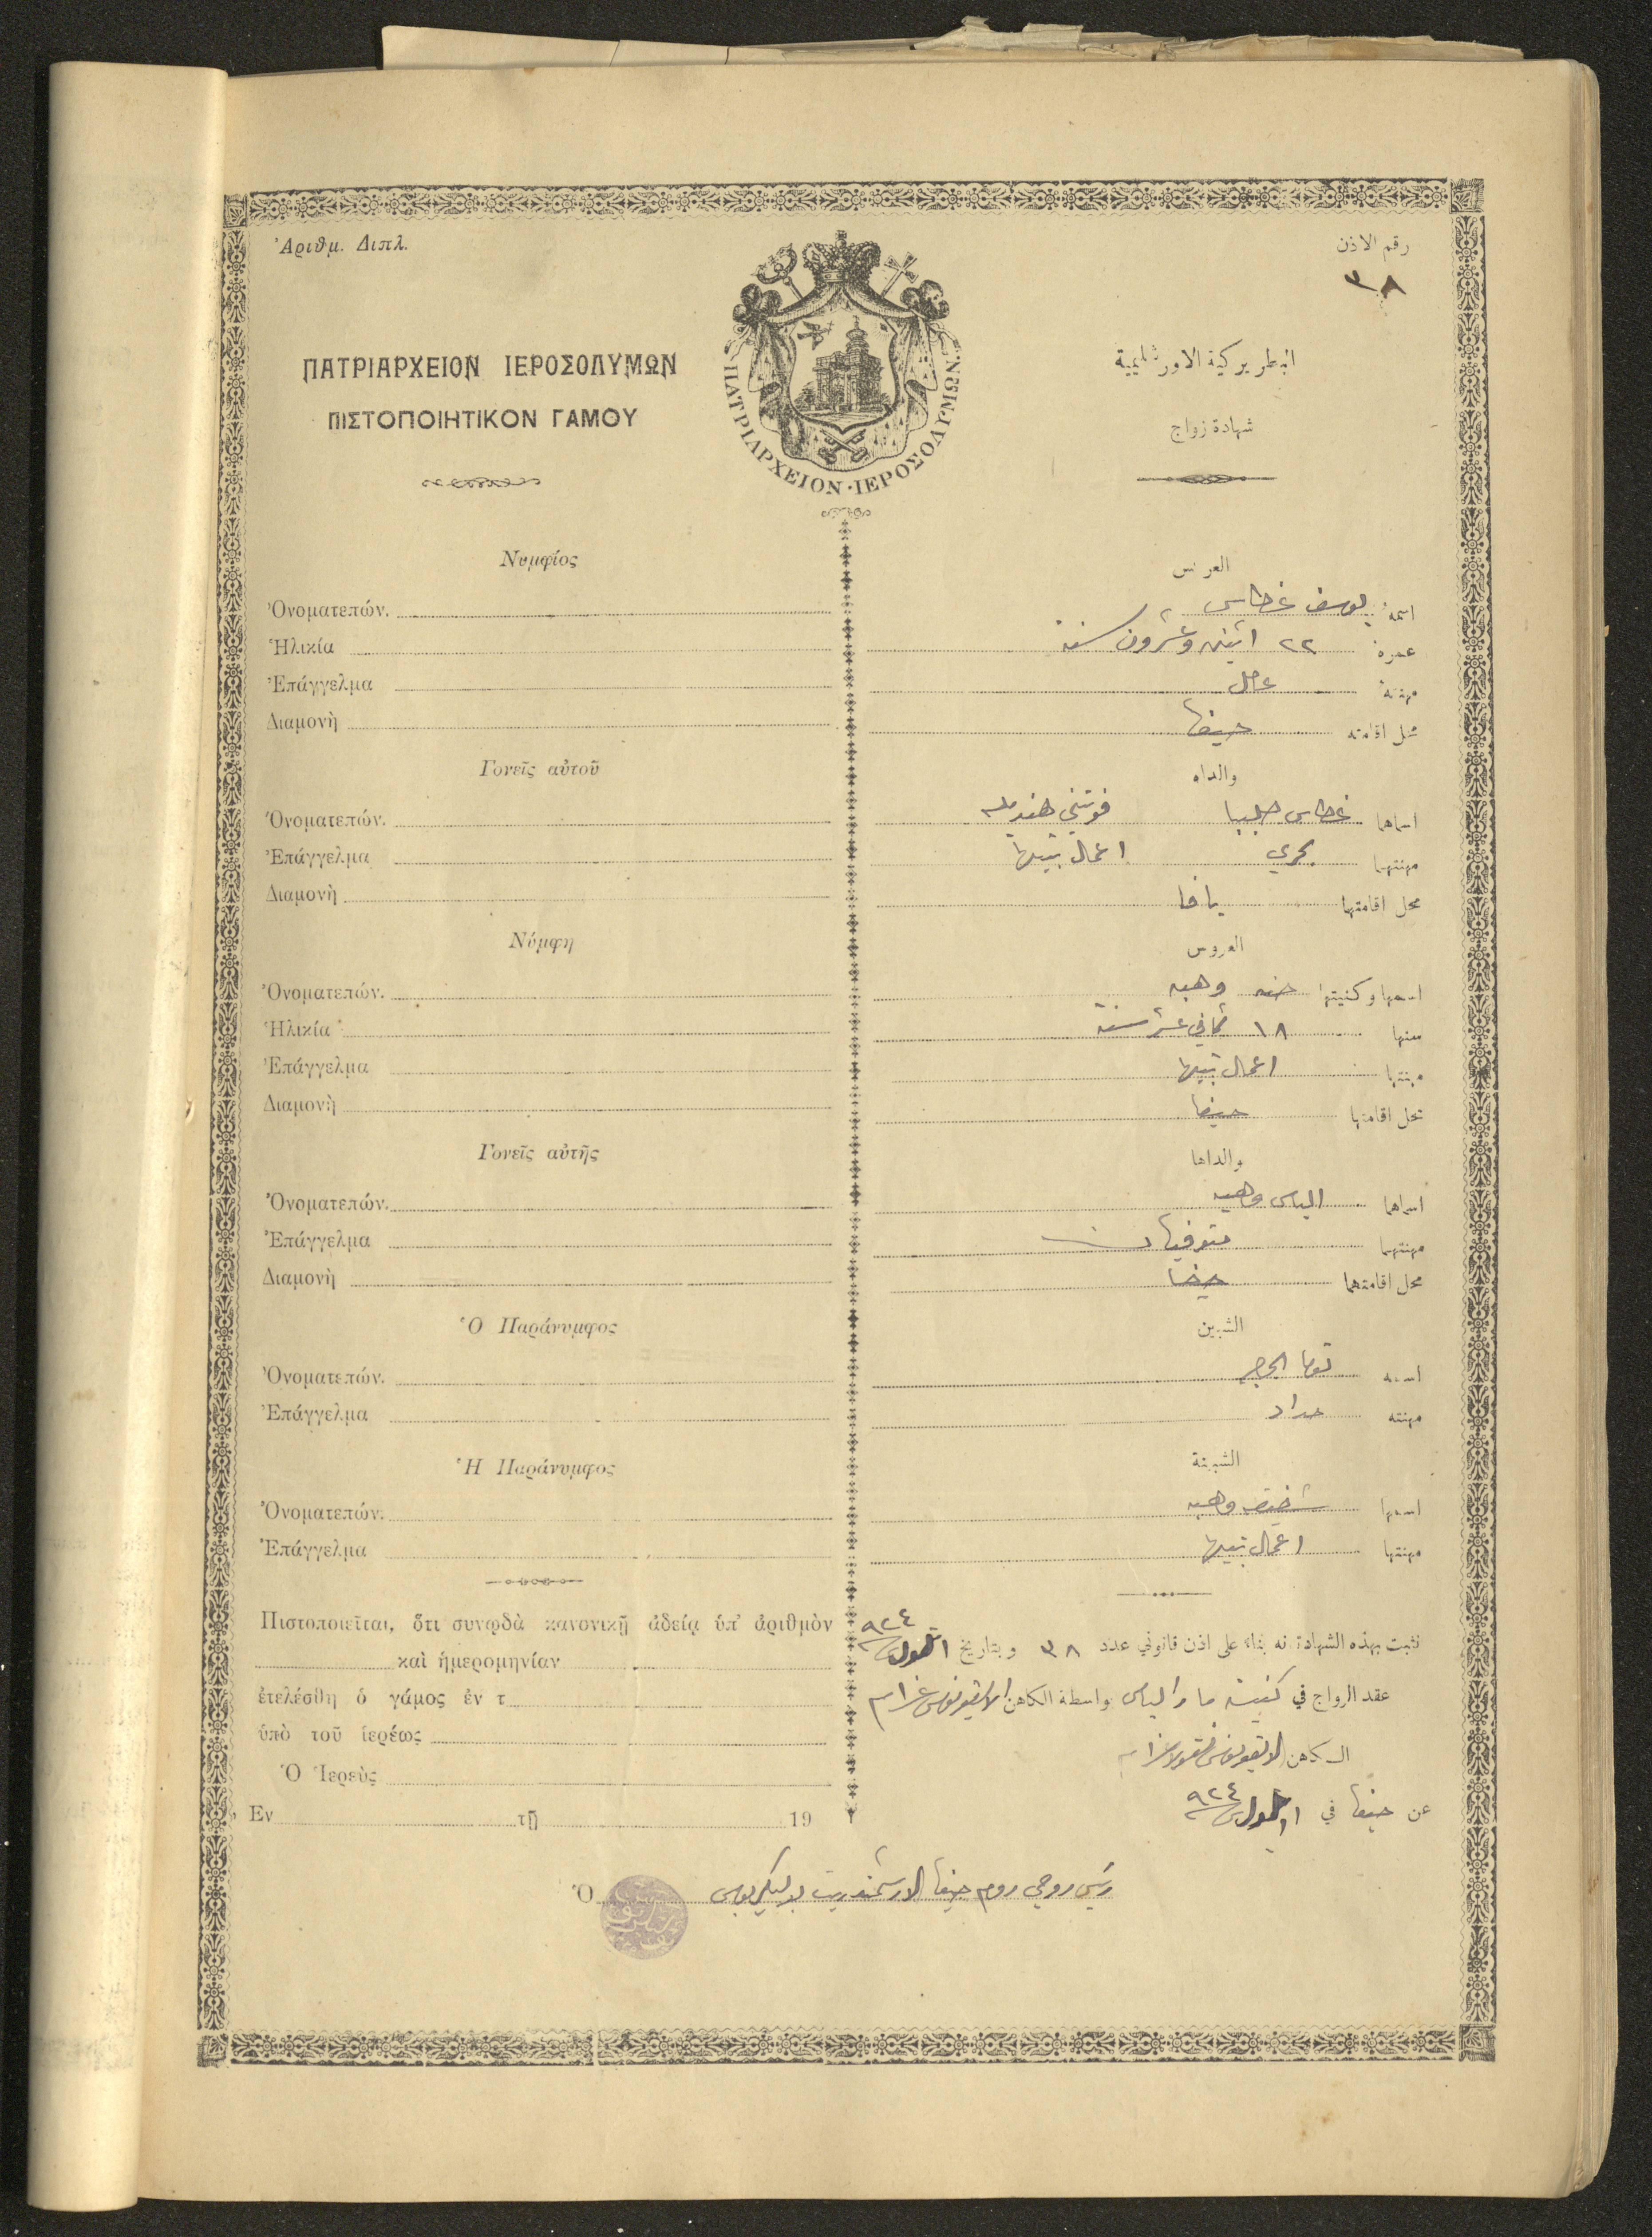 Ἀριθμ. Διπλ.
رقم الاذن
٣٨
ΠΑΤΡΙΑΡΧΕΙΟΝ ΙΕΡΟΣΟΛΥΜΩΝ
ΠΙΣΤΟΠΟΙΗΤΙΚΟΝ ΓΑΜΟΥ
ΠΑΤΡΙΑΡΧΕΙΟΝ·ΙΕΡΟΣΟΛΥΜΩΝ.
البطريركية الاورشليمية
شهادة زواج
Νυμφίος
Ὀνοματεπών.
Ἡλικία
Ἐπάγγελμα
Διαμονὴ
Γονεῖς αὐτοῦ
Ὀνοματεπών.
Ἐπάγγελμα
Διαμονὴ
Νύμφη
Ὀνοματεπών.
Ἡλικία
Ἐπάγγελμα
Διαμονὴ
Γονεῖς αὐτῆς
Ὀνοματεπών.
Ἐπάγγελμα
Διαμονὴ
Ὁ Παράνυμφος
Ὀνοματεπών.
Ἐπάγγελμα
Ἡ Παράνυμφος
Ὀνοματεπών.
Ἐπάγγελμα
Πιστοποιεῖται, ὅτι συνῳδὰ κανονικῇ ἀδείᾳ ὑπ' ἀριθμὸν
καὶ ἡμερομηνίαν
ἐτελέσθη ὁ γάμος ἐν τ
ὑπὸ τοῦ ἱερέως
Ὁ Ἱερεὺς
Ἐν τῇ 19
العريس
اسمه يوسف غطاس
عمره ٢٢ اثنين وعشرون سنة
مهنته عامل
محل اقامته حيفا
والداه
اسماهما غطاس حلبيا
مهنتهما بحري اعمال بيتها
محل اقامتهما يافا
العروس
اسمها وكنيتها حنه وهبه
سنها ١٨ ثماني عشر سنة
مهنتها اعمال بيتها
محل اقامتها حيفا
والداها
اسماهما الياس وهبه
مهنتهما متوفيان
محل اقامتهما حيفا
الشبين
اسمه توما
مهنته حداد
الشبينة
اسمها شفيقه وهبه
مهنتها اعمال بيتها
نثبت بهذه الشهادة انه بناء على اذن قانوني عدد ٣٨ و بتاريخ ١ ايلول ٩٢٤
عقد الزواج في كنيسة مار الياس بواسطة الكاهن
الكاهن
عن حيفا في ايلول ٩٢٤
Ὁ رئيس روحي روم حيفا الارشمندريت